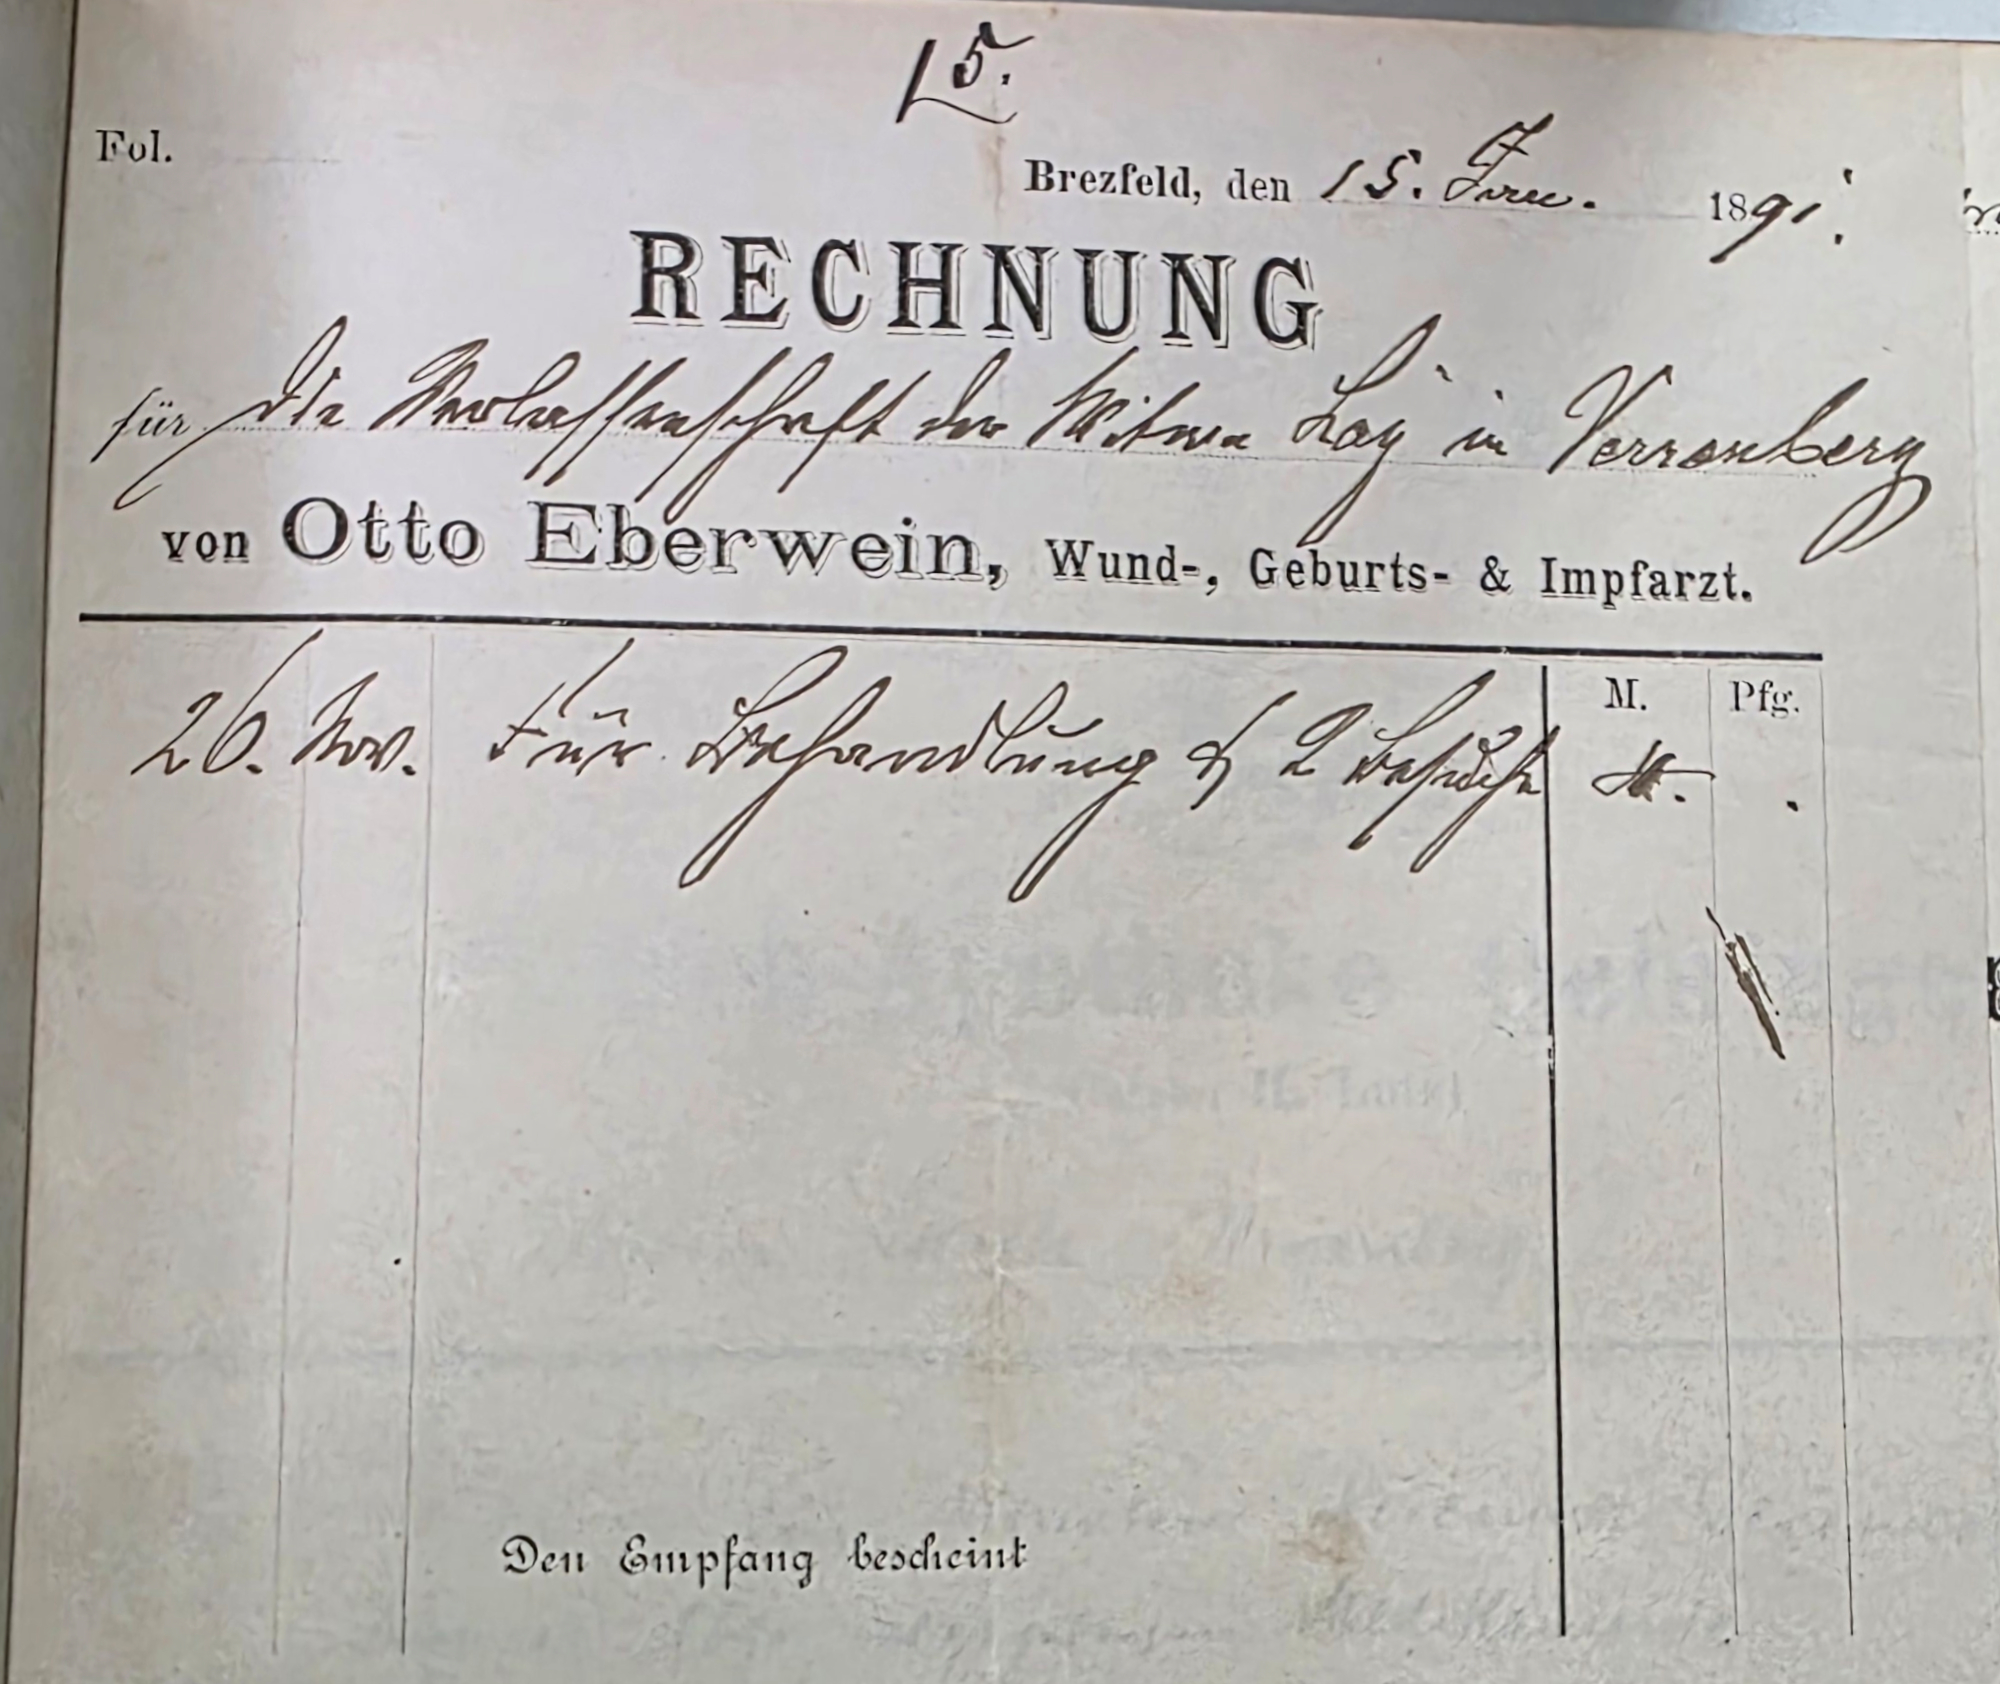 15.
Fol.
Brezfeld, den 15. Jan. 1891.
RECHNUNG
für die Verlassenschaft der Witwe Lay in Verrenberg
von Otto Eberwein, Wund-, Geburts- & Impfarzt.
M. Pfg.
26. Nov. Für Behandlung & 2 Besuche
Den Empfang bescheint